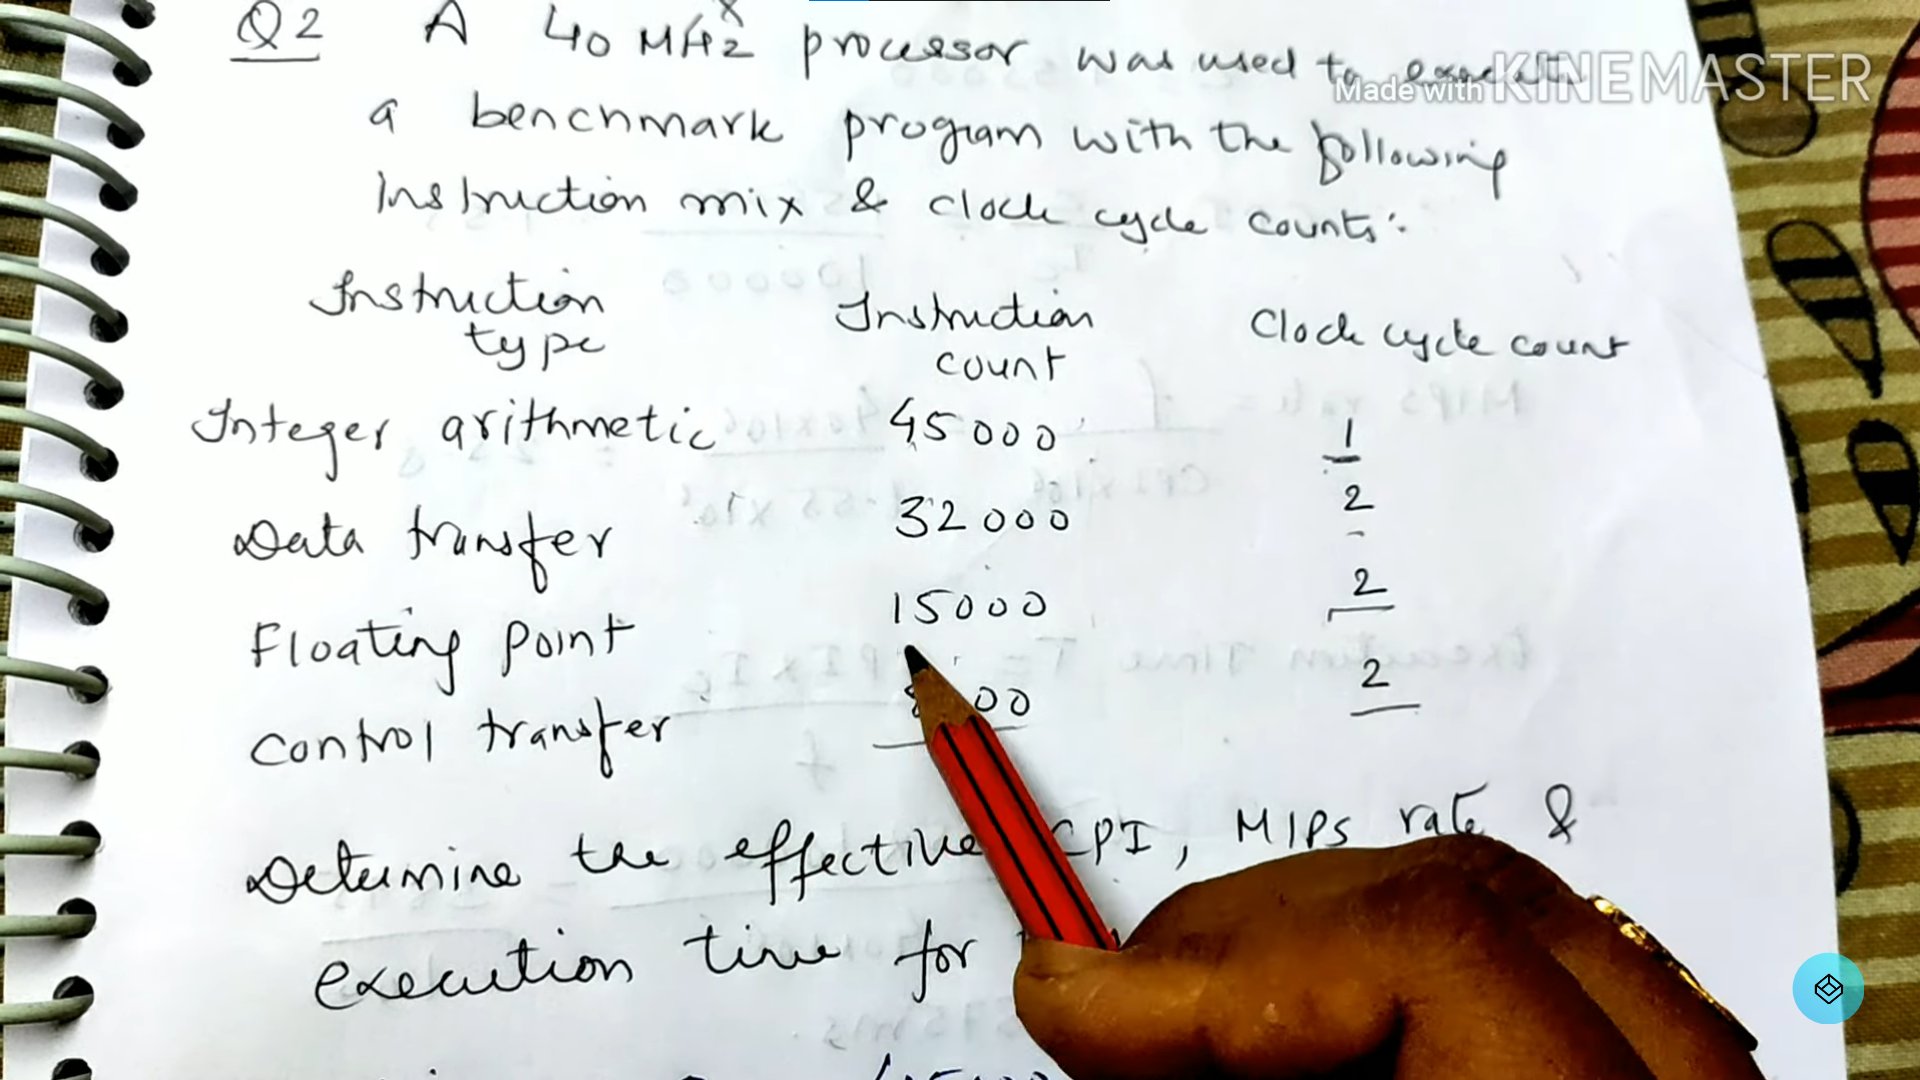 Q2 A 40 MHz x processor was used to execute
Made with KINEMASTER
a benchmark program with the following
Instruction mix & clock cycle counts:
Instruction type Instruction count Clock cycle count
Integer arithmetic 45000 1
Data transfer 32000 2
Floating point 15000 2
Control transfer 00 2
Determine the effective CPI, MIPS rate &
execution time for